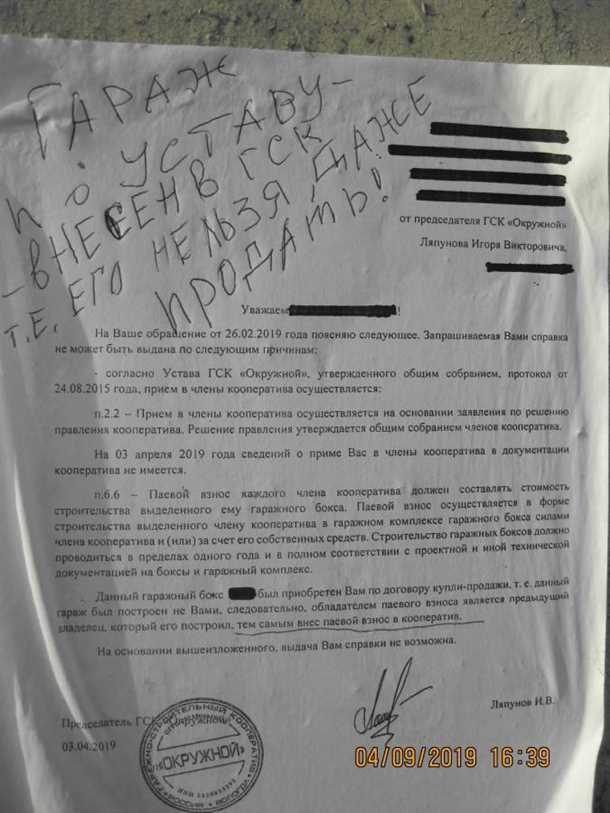 ГАРАЖ
ПО УСТАВУ -
- ВНЕСЕН В ГСК
Т.Е. ЕГО НЕЛЬЗЯ ДАЖЕ
ПРОДАТЬ!
от председателя ГСК «Окружной»
Ляпунова Игоря Викторовича,
Уважаем !
На Ваше обращение от 26.02.2019 года поясняю следующее. Запрашиваемая Вами справка
не может быть выдана по следующим причинам:
- согласно Устава ГСК «Окружной», утвержденного общим собранием, протокол от
24.08.2015 года, прием в члены кооператива осуществляется:
п.2.2 – Прием в члены кооператива осуществляется на основании заявления по решению
правления кооператива. Решение правления утверждается общим собранием членов кооператива.
На 03 апреля 2019 года сведений о приме Вас в члены кооператива в документации
кооператива не имеется.
п.6.6 – Паевой взнос каждого члена кооператива должен составлять стоимость
строительства выделенного ему гаражного бокса. Паевой взнос осуществляется в форме
строительства выделенного члену кооператива в гаражном комплексе гаражного бокса силами
члена кооператива и (или) за счет его собственных средств. Строительство гаражных боксов должно
проводиться в пределах одного года и в полном соответствии с проектной и иной технической
документацией на боксы и гаражный комплекс.
Данный гаражный бокс был приобретен Вам по договору купли-продажи, т. е. данный
гараж был построен не Вами, следовательно, обладателем паевого взноса является предыдущий
владелец, который его построил, тем самым внес паевой взнос в кооператив.
На основании вышеизложенного, выдача Вам справки не возможна.
Ляпунов И.В.
Председатель ГСК «Окружной»
03.04.2019
«ОКРУЖНОЙ»
04/09/2019 16:39